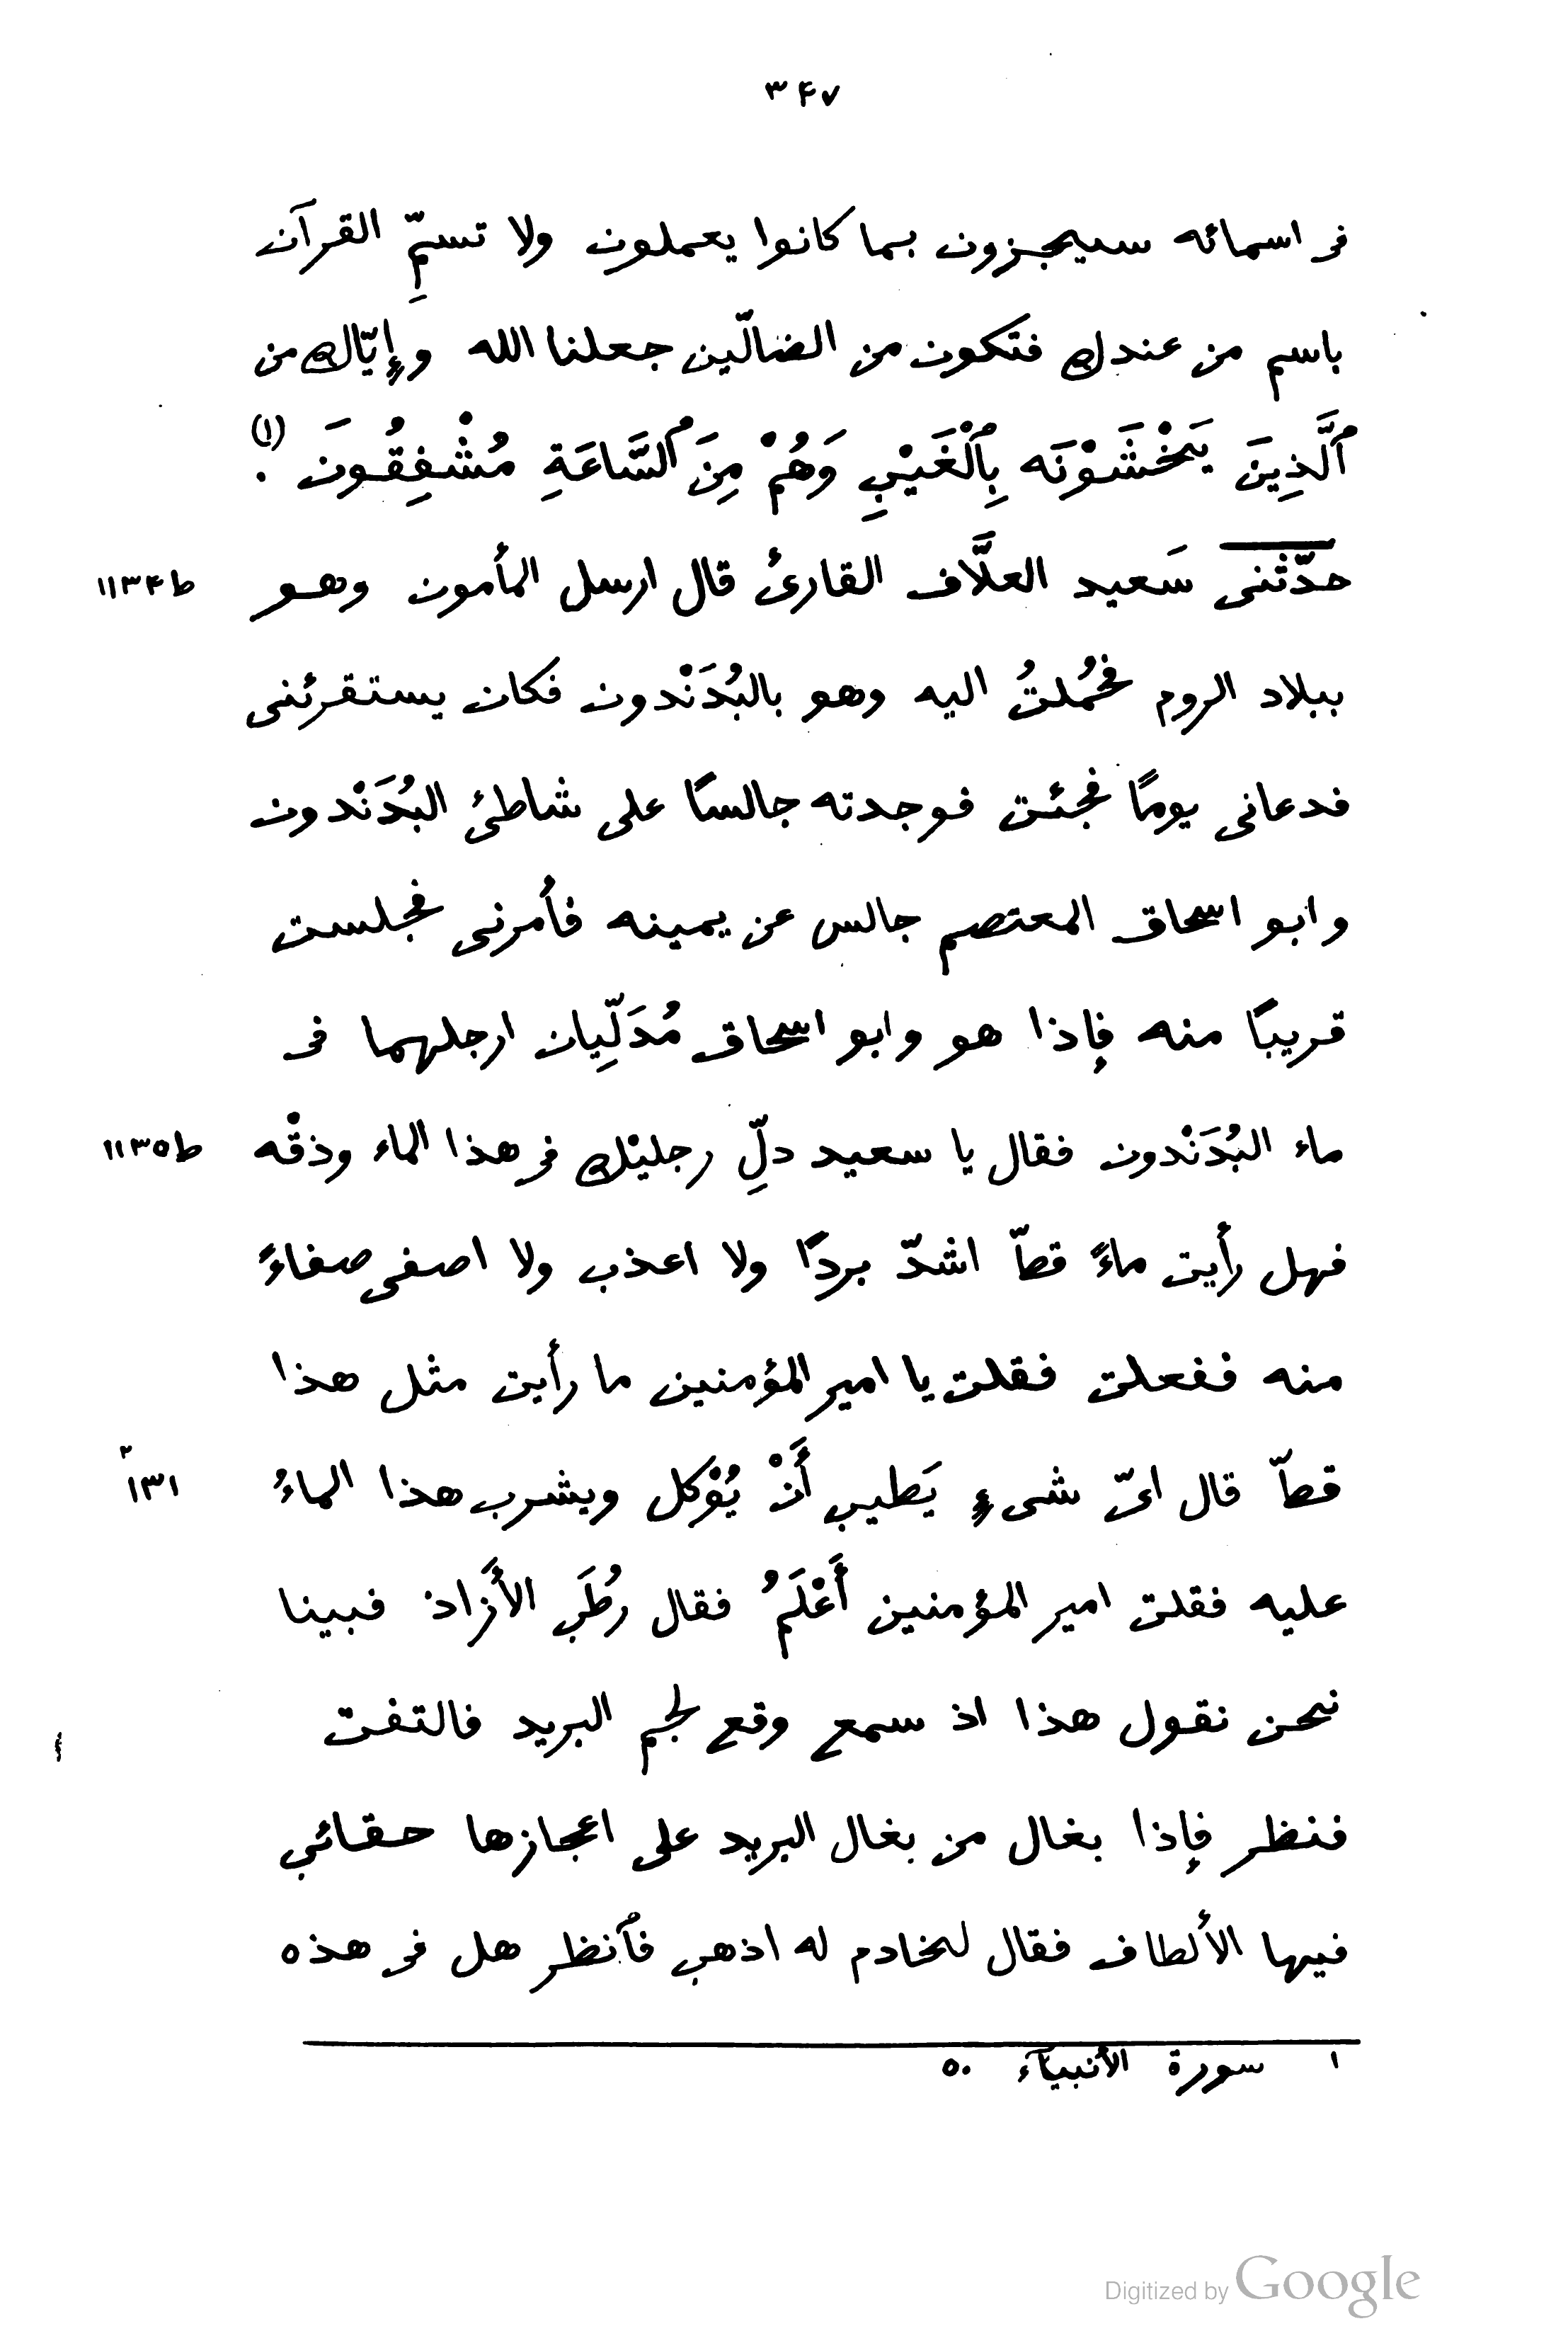 ٣۴٧
فى اسمائه سيجزون بما كانوا يعملون ولا تسمِّ القرآن
باسم من عندك فتكون من الضالّين جعلنا الله وإيّاك من
ٱلَّذِينَ يَخْشَوْنَه بِٱلْغَيْبِ وَهُمْ مِنَ ٱلسَّاعَةِ مُشْفِقُونَ (١).
حدّثنى سَعيد العلَّاف القارئ قال ارسل المأمون وهو ط١١٣۴
ببلاد الروم فحُملتُ اليه وهو بالبُدَنْدون فكان يستقرئنى
فدعانى يومًا فجئت فوجدته جالسًا على شاطئ البُدَنْدون
وابو اسحاق المعتصم جالس عن يمينه فأمرنى فجلست
قريبًا منه فإذا هو وابو اسحاق مُدَلِّيان ارجلهما فى
ماء البُدَنْدون فقال يا سعيد دلِّ رجليْك فى هذا الماء وذقْه ط١١٣٥
فهل رأيت ماءً قطّ اشدّ بردًا ولا اعذب ولا اصفى صفاءً
منه ففعلت فقلت يا امير المؤمنين ما رأيت مثل هذا
قطّ قال اىّ شىءٍ يَطيب أَنْ يُؤْكل ويشرب هذا الماءُ ١٣١٢
عليه فقلت امير المؤمنين أَعْلَمُ فقال رُطَب الأَزاذ فبينا
نحن نقول هذا اذ سمع وقع لجم البريد فالتفت
فنظر فإذا بغال من بغال البريد على اعجازها حقائب
فيها الألطاف فقال لخادم له اذهب فٱنظر هل فى هذه
١ سورة الأنبيآء ٥٠
Digitized by Google